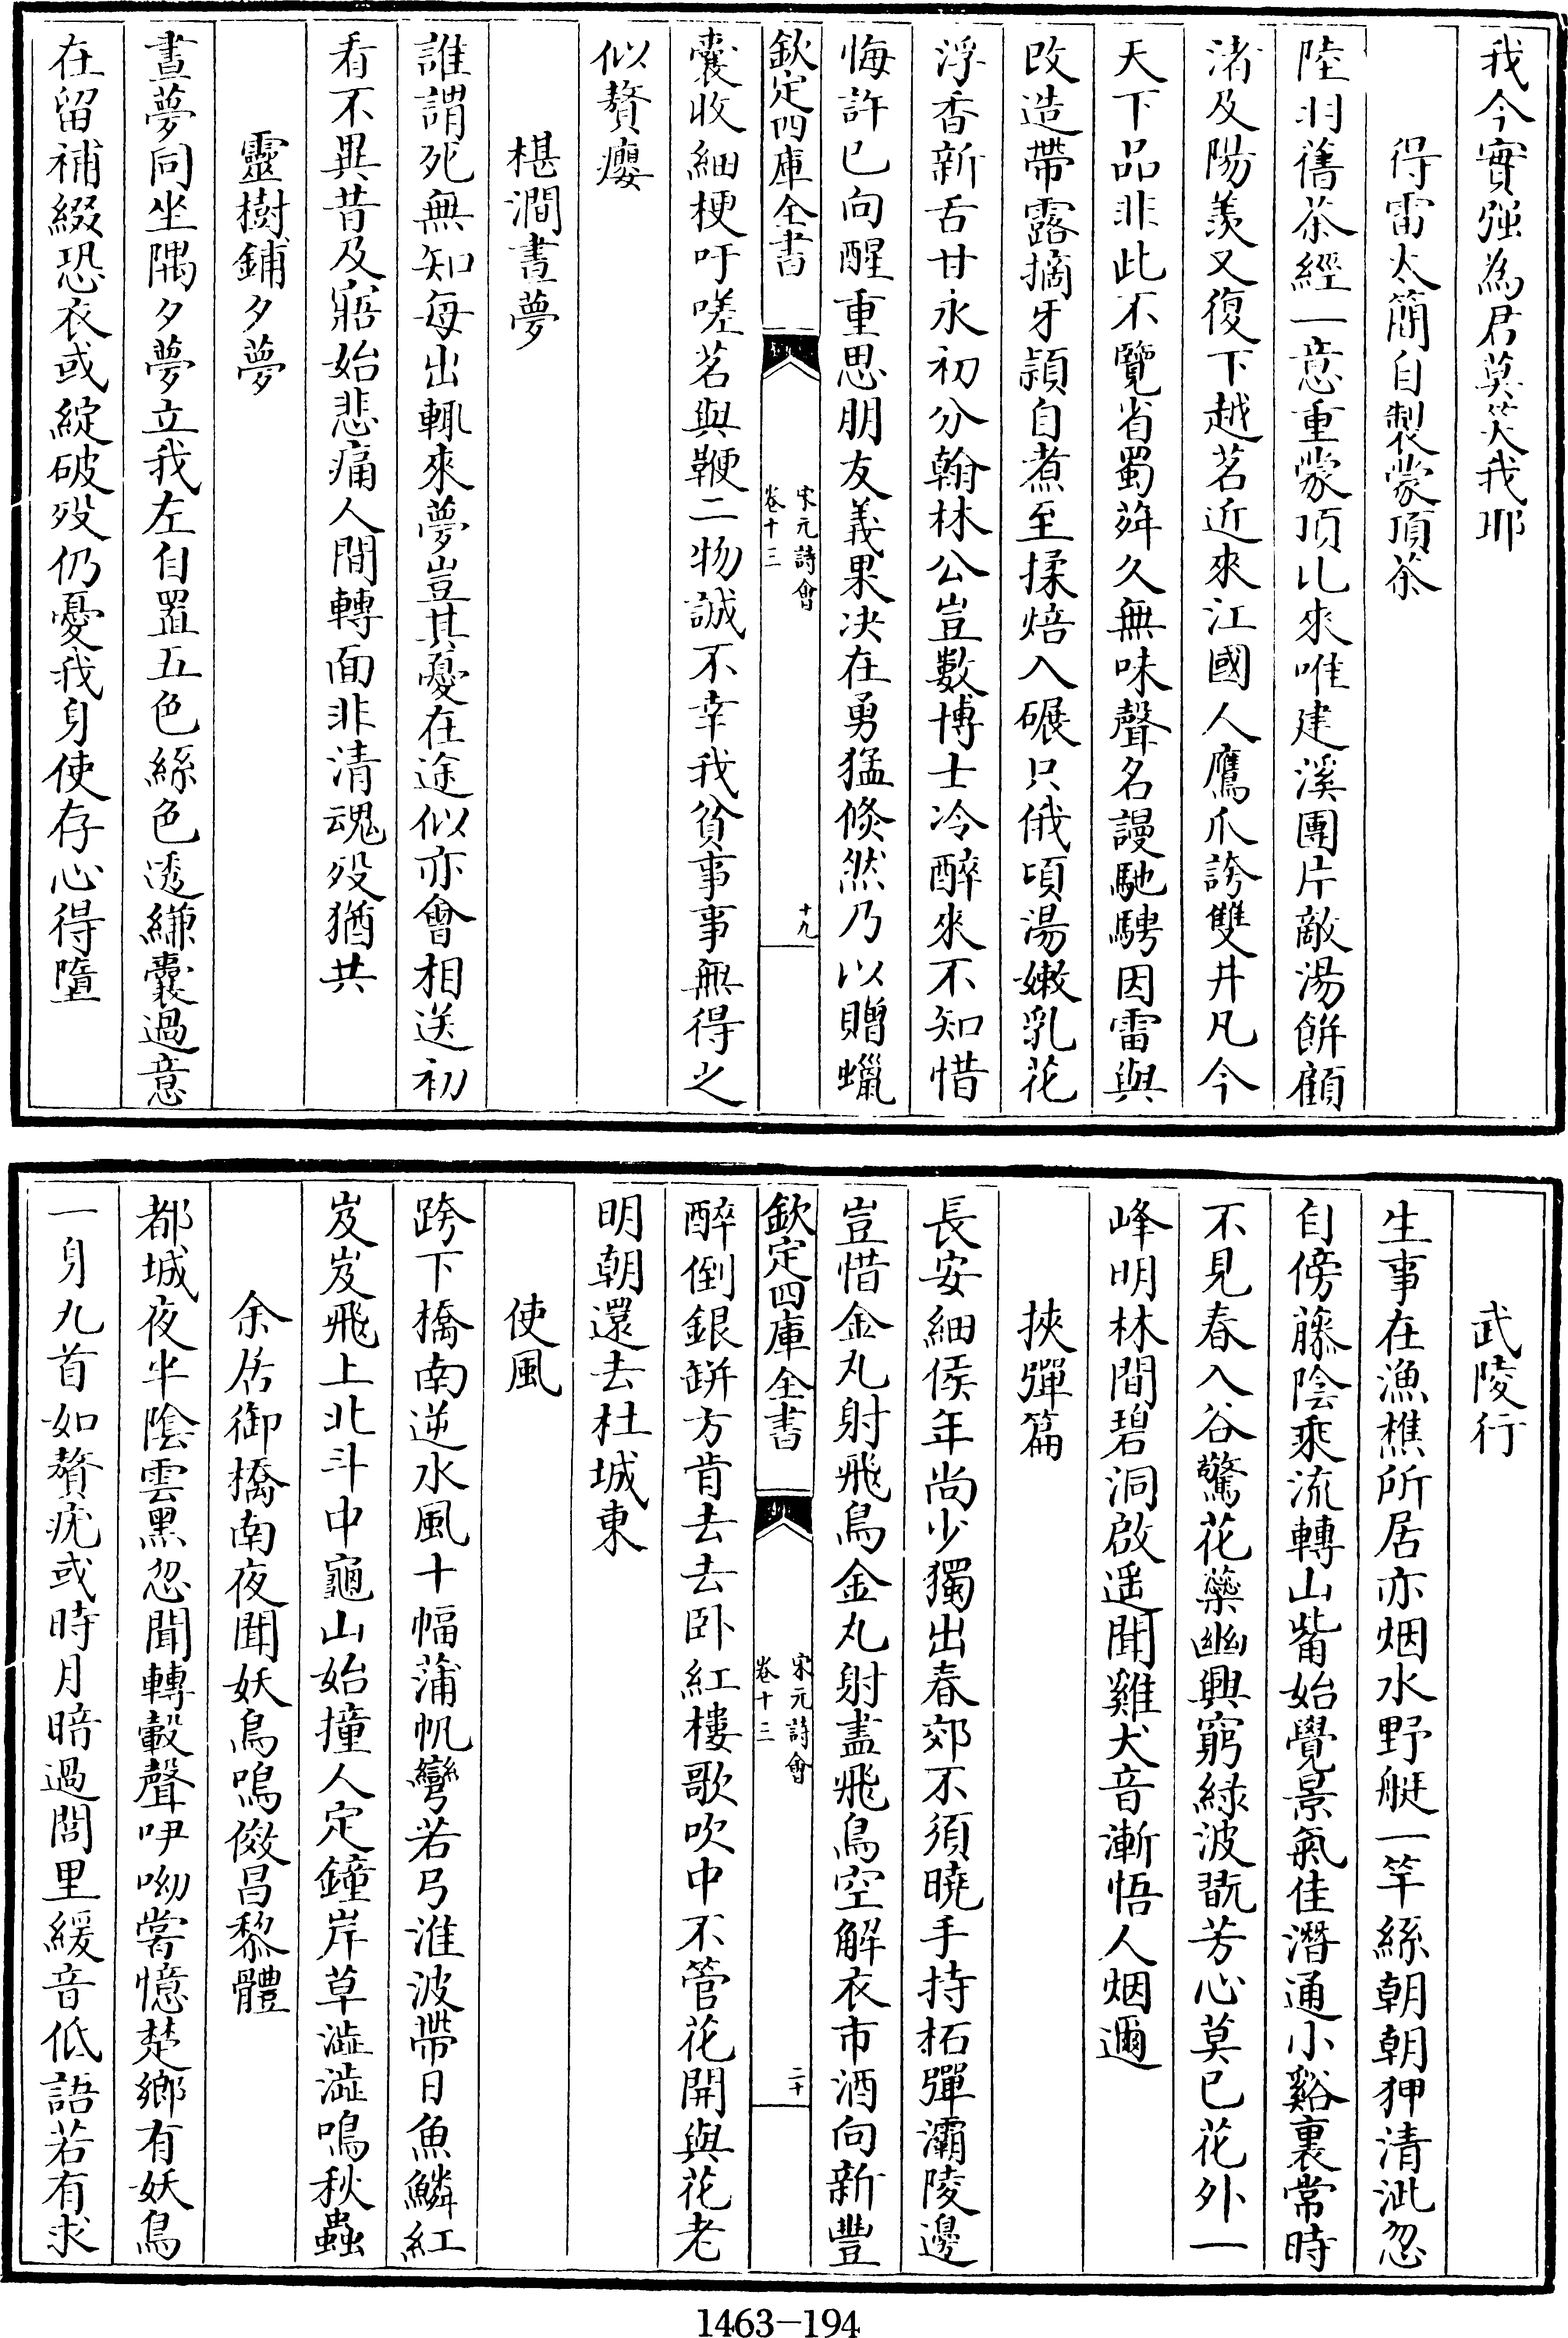 我今實强為君莫笑我耶
得雷太簡自製蒙頂茶
陸羽舊茶經一意重蒙頂比來唯建溪團片敵湯餅顧
渚及陽羨又復下越茗近來江國人鷹爪誇雙井凡今
天下品非此不覽省蜀荈久無味聲名謾馳騁因雷與
改造帶露摘牙穎自煮至揉焙入碾只俄頃湯嫩乳花
浮香新舌甘永初分翰林公豈數博士冷醉來不知惜
悔許已向醒重思朋友義果决在勇猛倏然乃以贈蠟
欽定四庫全書 宋元詩會 卷十三 十九
囊收細梗吁嗟茗與鞭二物誠不幸我貧事事無得之
似贅癭
椹澗晝夢
誰謂死無知每出輒來夢豈其憂在途似亦會相送初
看不異昔及寤始悲痛人間轉面非清魂歿猶共
靈樹鋪夕夢
晝夢同坐隅夕夢立我左自置五色絲色透縑囊過意
在留補綴恐衣或綻破歿仍憂我身使存心得墮
武陵行
生事在漁樵所居亦烟水野艇一竿絲朝朝狎清泚忽
自傍藤陰乘流轉山觜始覺景氣佳潛通小谿裏常時
不見春入谷驚花藥幽興窮緑波翫芳心莫已花外一
峰明林間碧洞啟遥聞雞犬音漸悟人烟邇
挾彈篇
長安細侯年尚少獨出春郊不須曉手持柘彈灞陵邊
豈惜金丸射飛鳥金丸射盡飛鳥空解衣市酒向新豐
欽定四庫全書 宋元詩會 卷十三 二十
醉倒銀缾方肯去去卧紅樓歌吹中不管花開與花老
明朝還去杜城東
使風
跨下橋南逆水風十幅蒲帆彎若弓淮波帶日魚鱗紅
岌岌飛上北斗中龜山始撞人定鐘岸草澁澁鳴秋蟲
余居御橋南夜聞妖鳥鳴傚昌黎體
都城夜半陰雲黑忽聞轉轂聲咿呦嘗憶楚鄉有妖鳥
一身九首如贅疣或時月暗過閭里緩音低語若有求
1463-194